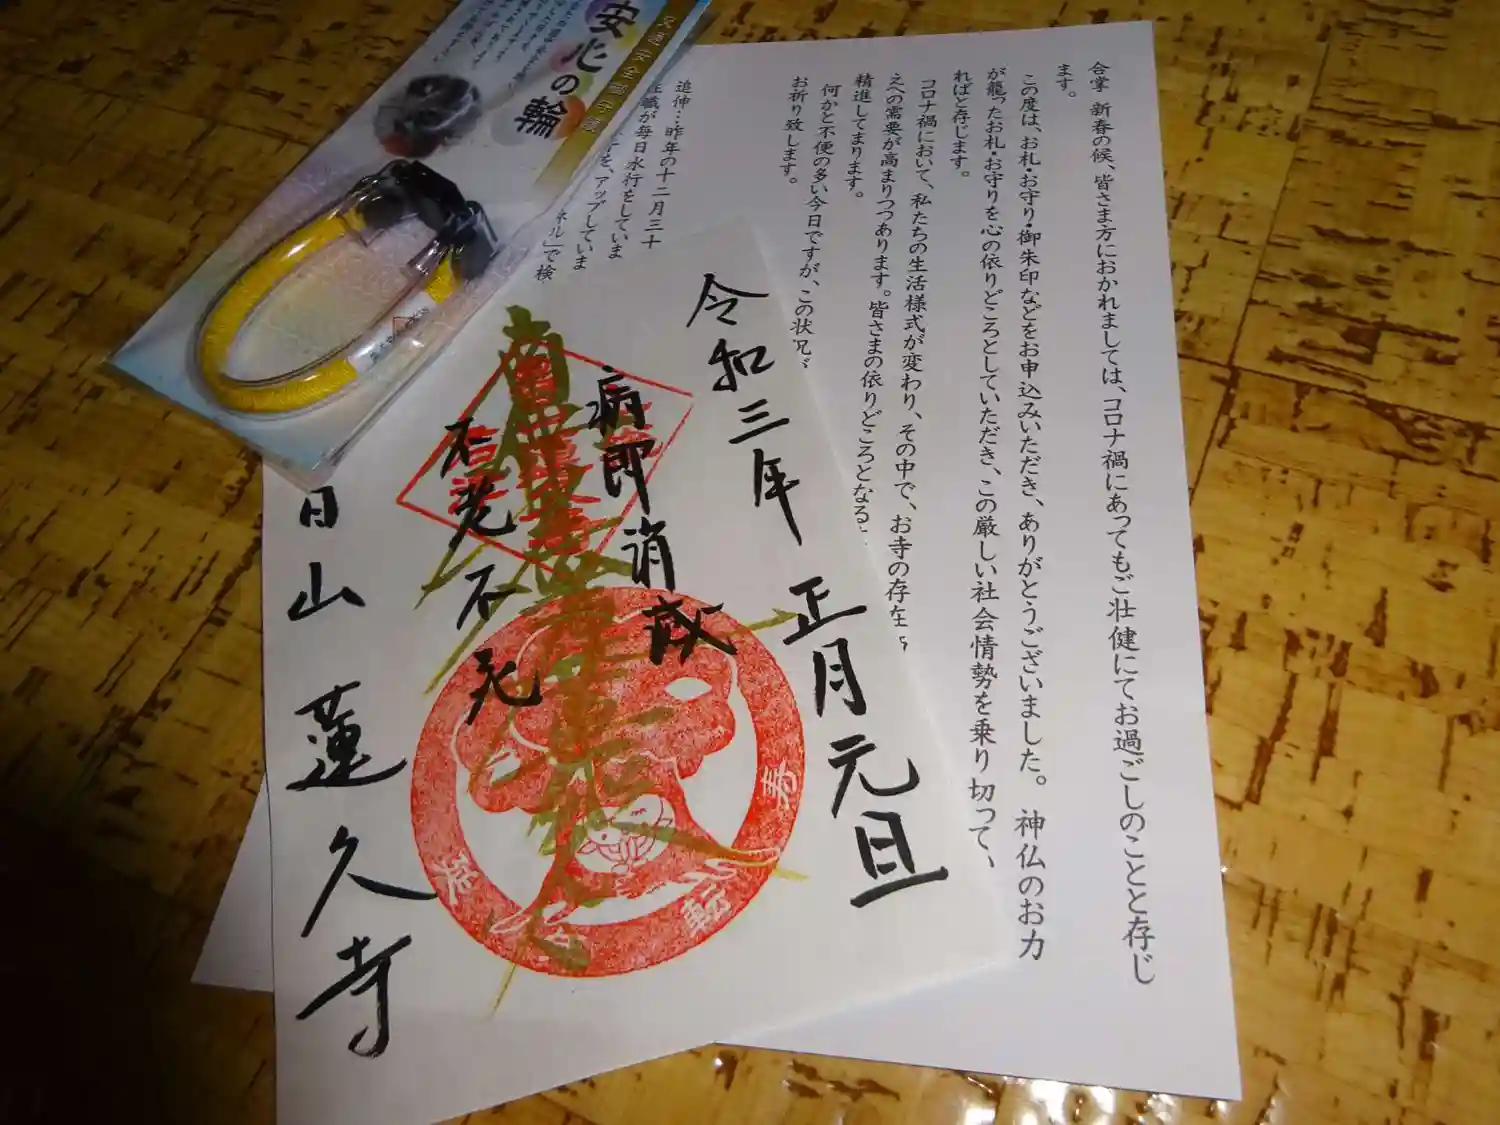 合掌 新春の候、皆さま方におかれましては、コロナ禍にあってもご壮健にてお過ごしのことと存じ
ます。
この度は、お札・お守り・御朱印などをお申込みいただき、ありがとうございました。 神仏のお力
が籠ったお札・お守りを心の依りどころとしていただき、この厳しい社会情勢を乗り切って、
ればと存じます。
コロナ禍において、私たちの生活様式が変わり、その中で、お寺の存在
えへの需要が高まりつつあります。皆さまの依りどころとなる
精進してまります。
何かと不便の多い今日ですが、この状況
お祈り致します。
追伸…昨年の十二月三十
住職が毎日水行をしていま
を、アップしていま
ネル」で検
交通安全御守護
安心の輪
令和三年 正月元旦
病即消滅
不老不死
日山 蓮久寺
寿
転